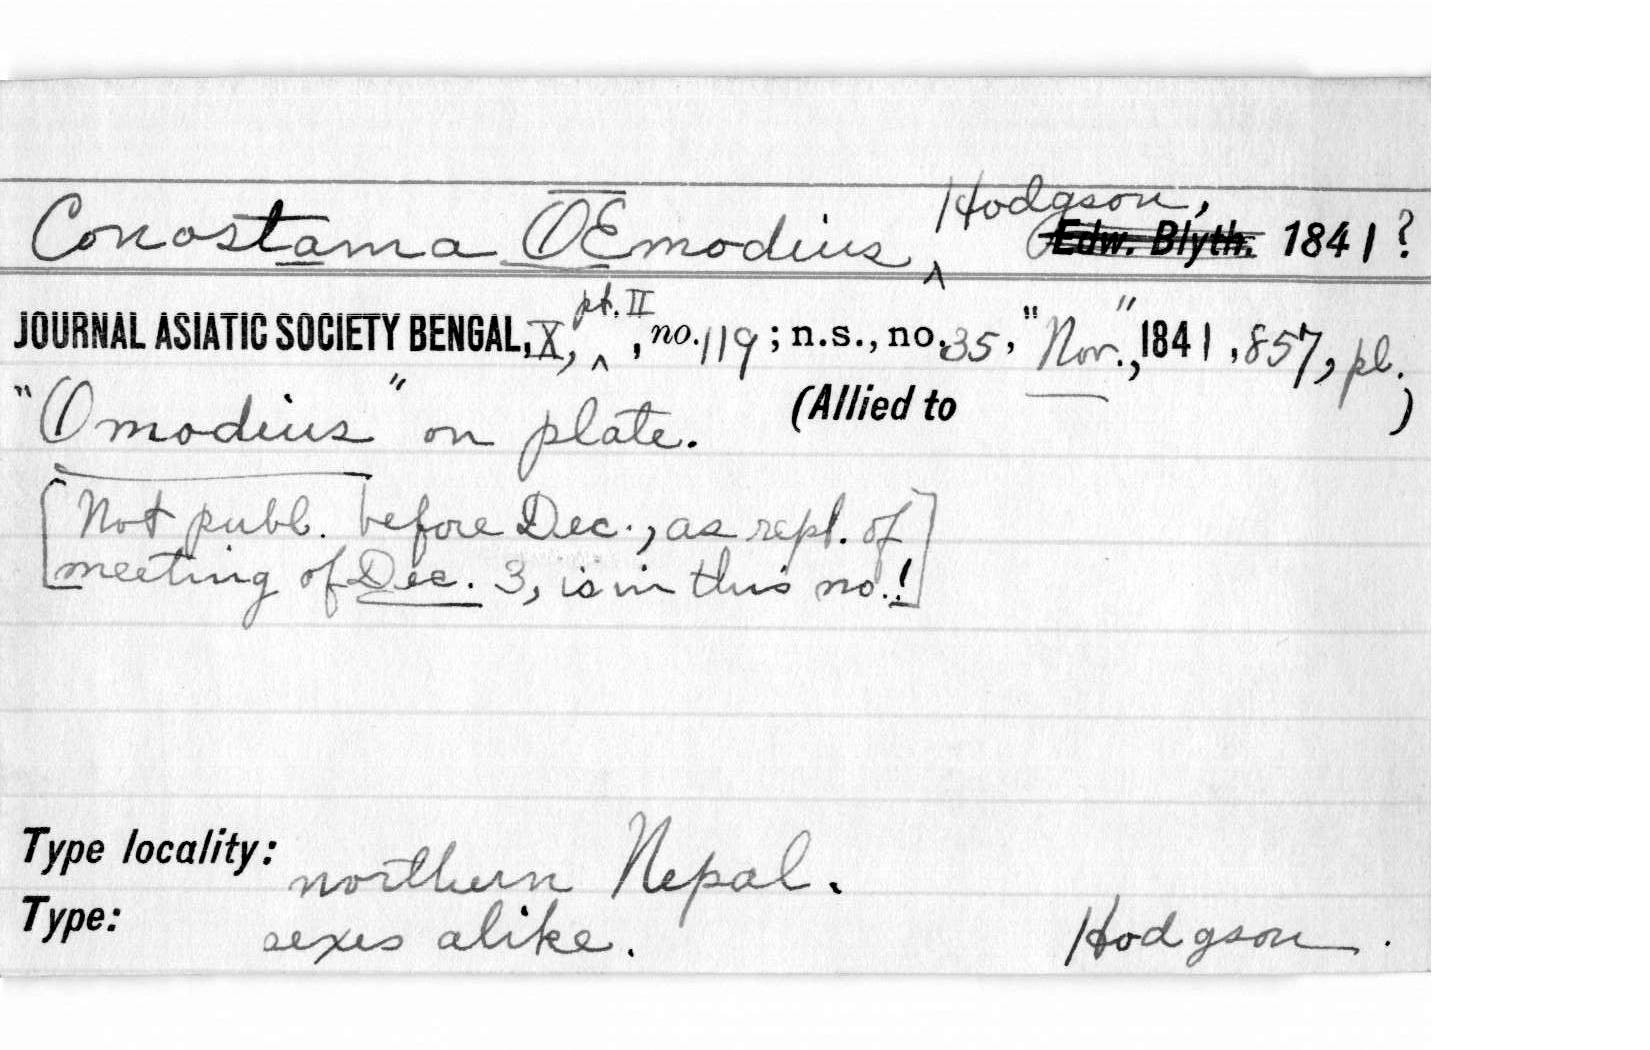 Conostama OEmodius, Hodgson, Edw. Blyth. 1841?
JOURNAL ASIATIC SOCIETY BENGAL, X, pt. II, no. 119; n.s., no. 35, "Nov.", 1841, 857, pl.
"Omodius" on plate. (Allied to )
[Not publ. before Dec., as rept. of
meeting of Dec. 3, is in this no.!]
Type locality: northern Nepal.
Type: sexes alike. Hodgson.